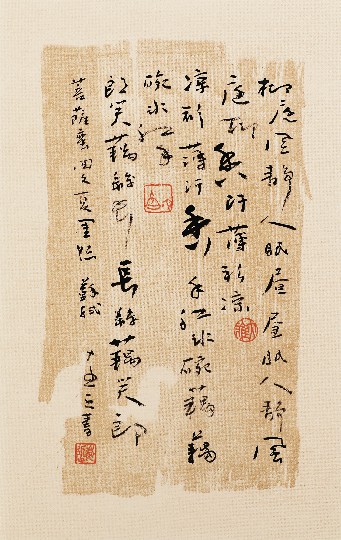 柳庭風靜人眠晝晝眠人靜風
庭柳香汗薄衫涼
涼衫薄汗香手紅冰碗藕藕
碗冰紅手
郎笑藕絲長長絲藕笑郎
菩薩蠻回文夏閨怨 蘇軾
書